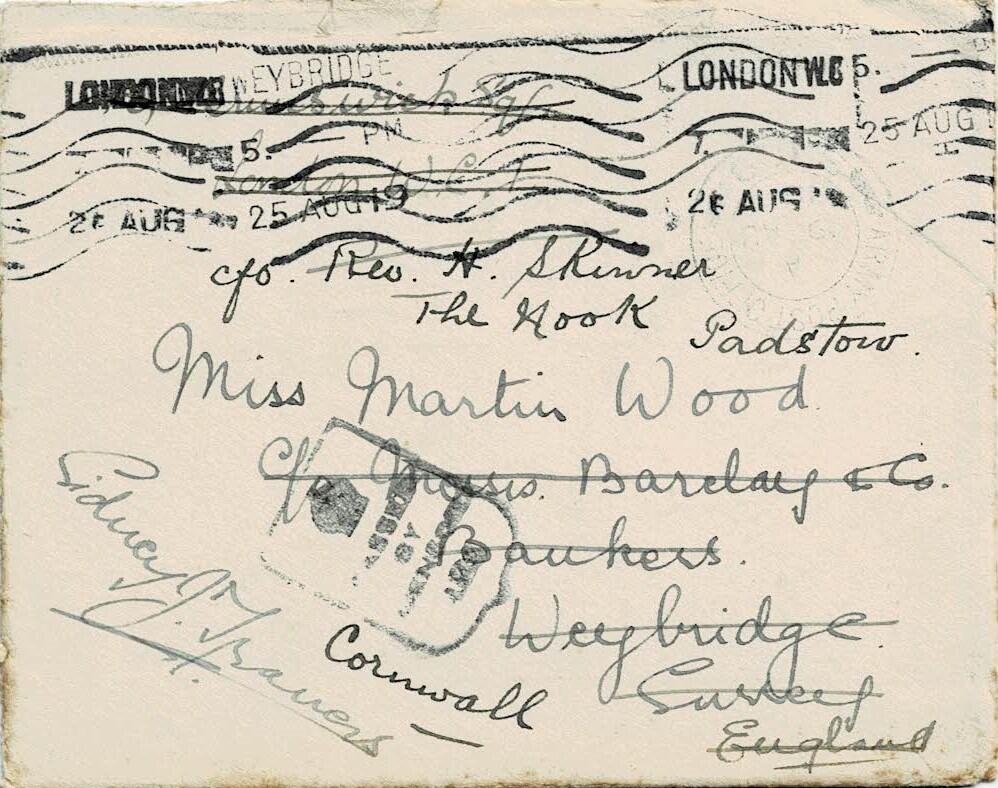 LONDON W.C WEYBRIDGE LONDON W.C 5.
Brunswick Sq
5. PM 7. 25 AUG 1
London W.C.1
26 AUG 25 AUG 19 26 AUG 19
c/o. Rev. H. Skinner
The Hook
Padstow.
Miss Martin Wood
C/o Messrs. Barclay & Co.
Bankers.
Weybridge
Surrey
England
Cornwall
PASSED
BY
CENSOR
Sidney J. Travers